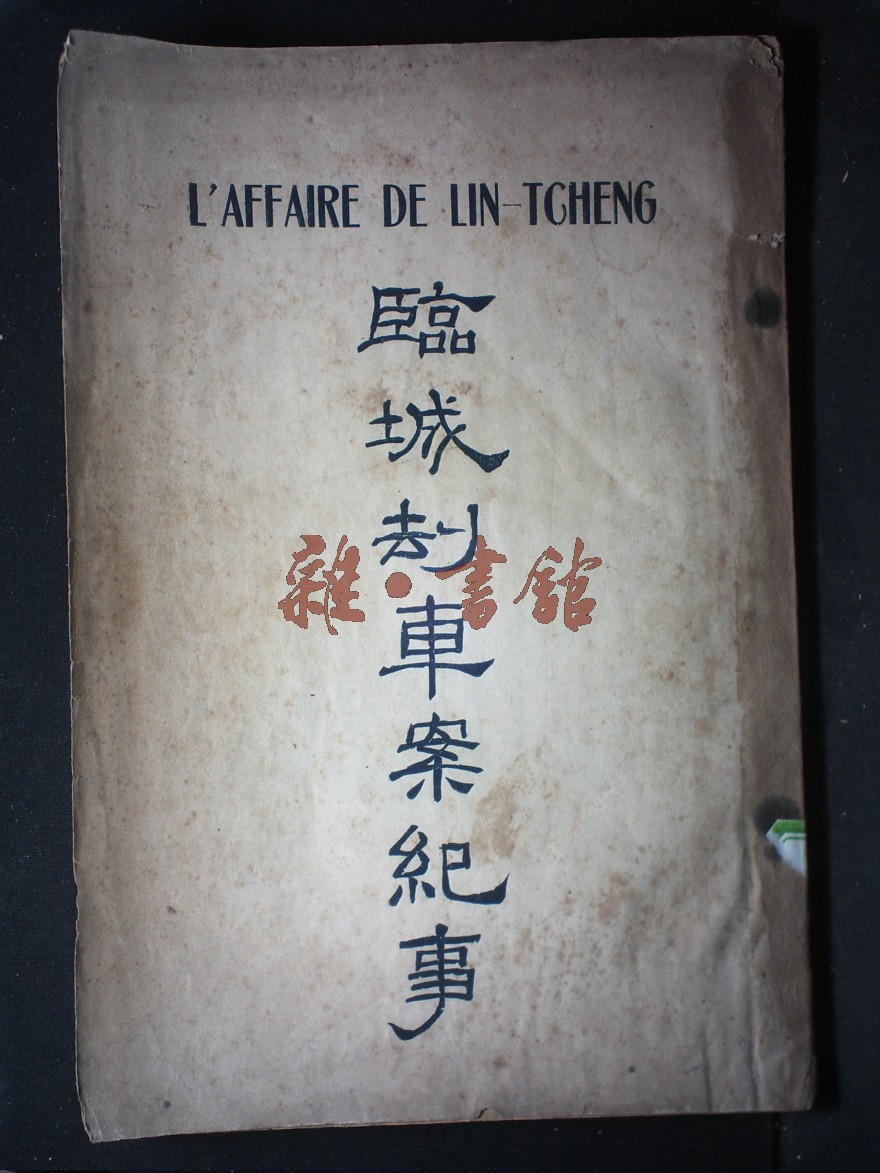 L'AFFAIRE DE LIN-TCHENG
臨城刦車案紀事
雜·書館